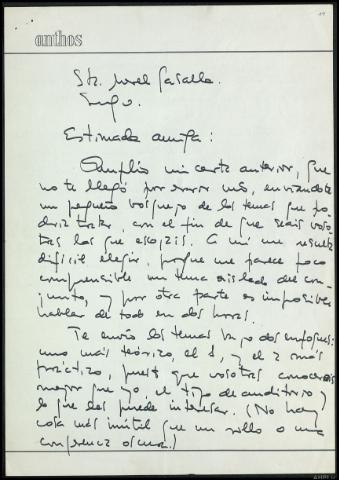 anthos
Sta. Gasalla.
Lugo.
Estimada amiga:
Amplío mi carta anterior, que
no te llegó por error mío, enviándote
un pequeño bosquejo de los temas que po-
dría tratar, con el fin de que seáis voso-
tras las que escojáis. A mí me resulta
difícil elegir, porque me parece poco
comprensible un tema aislado del con-
junto, y por otra parte es imposible
hablar de todo en dos horas.
Te envío los temas bajo dos enfoques:
uno más teórico, el 1, y el 2 más
práctico, puesto que vosotras conoceréis
mejor que yo, el tipo de auditorio y
lo que les puede interesar. (No hay
cosa más inútil que un rollo o una
conferencia oscura.)